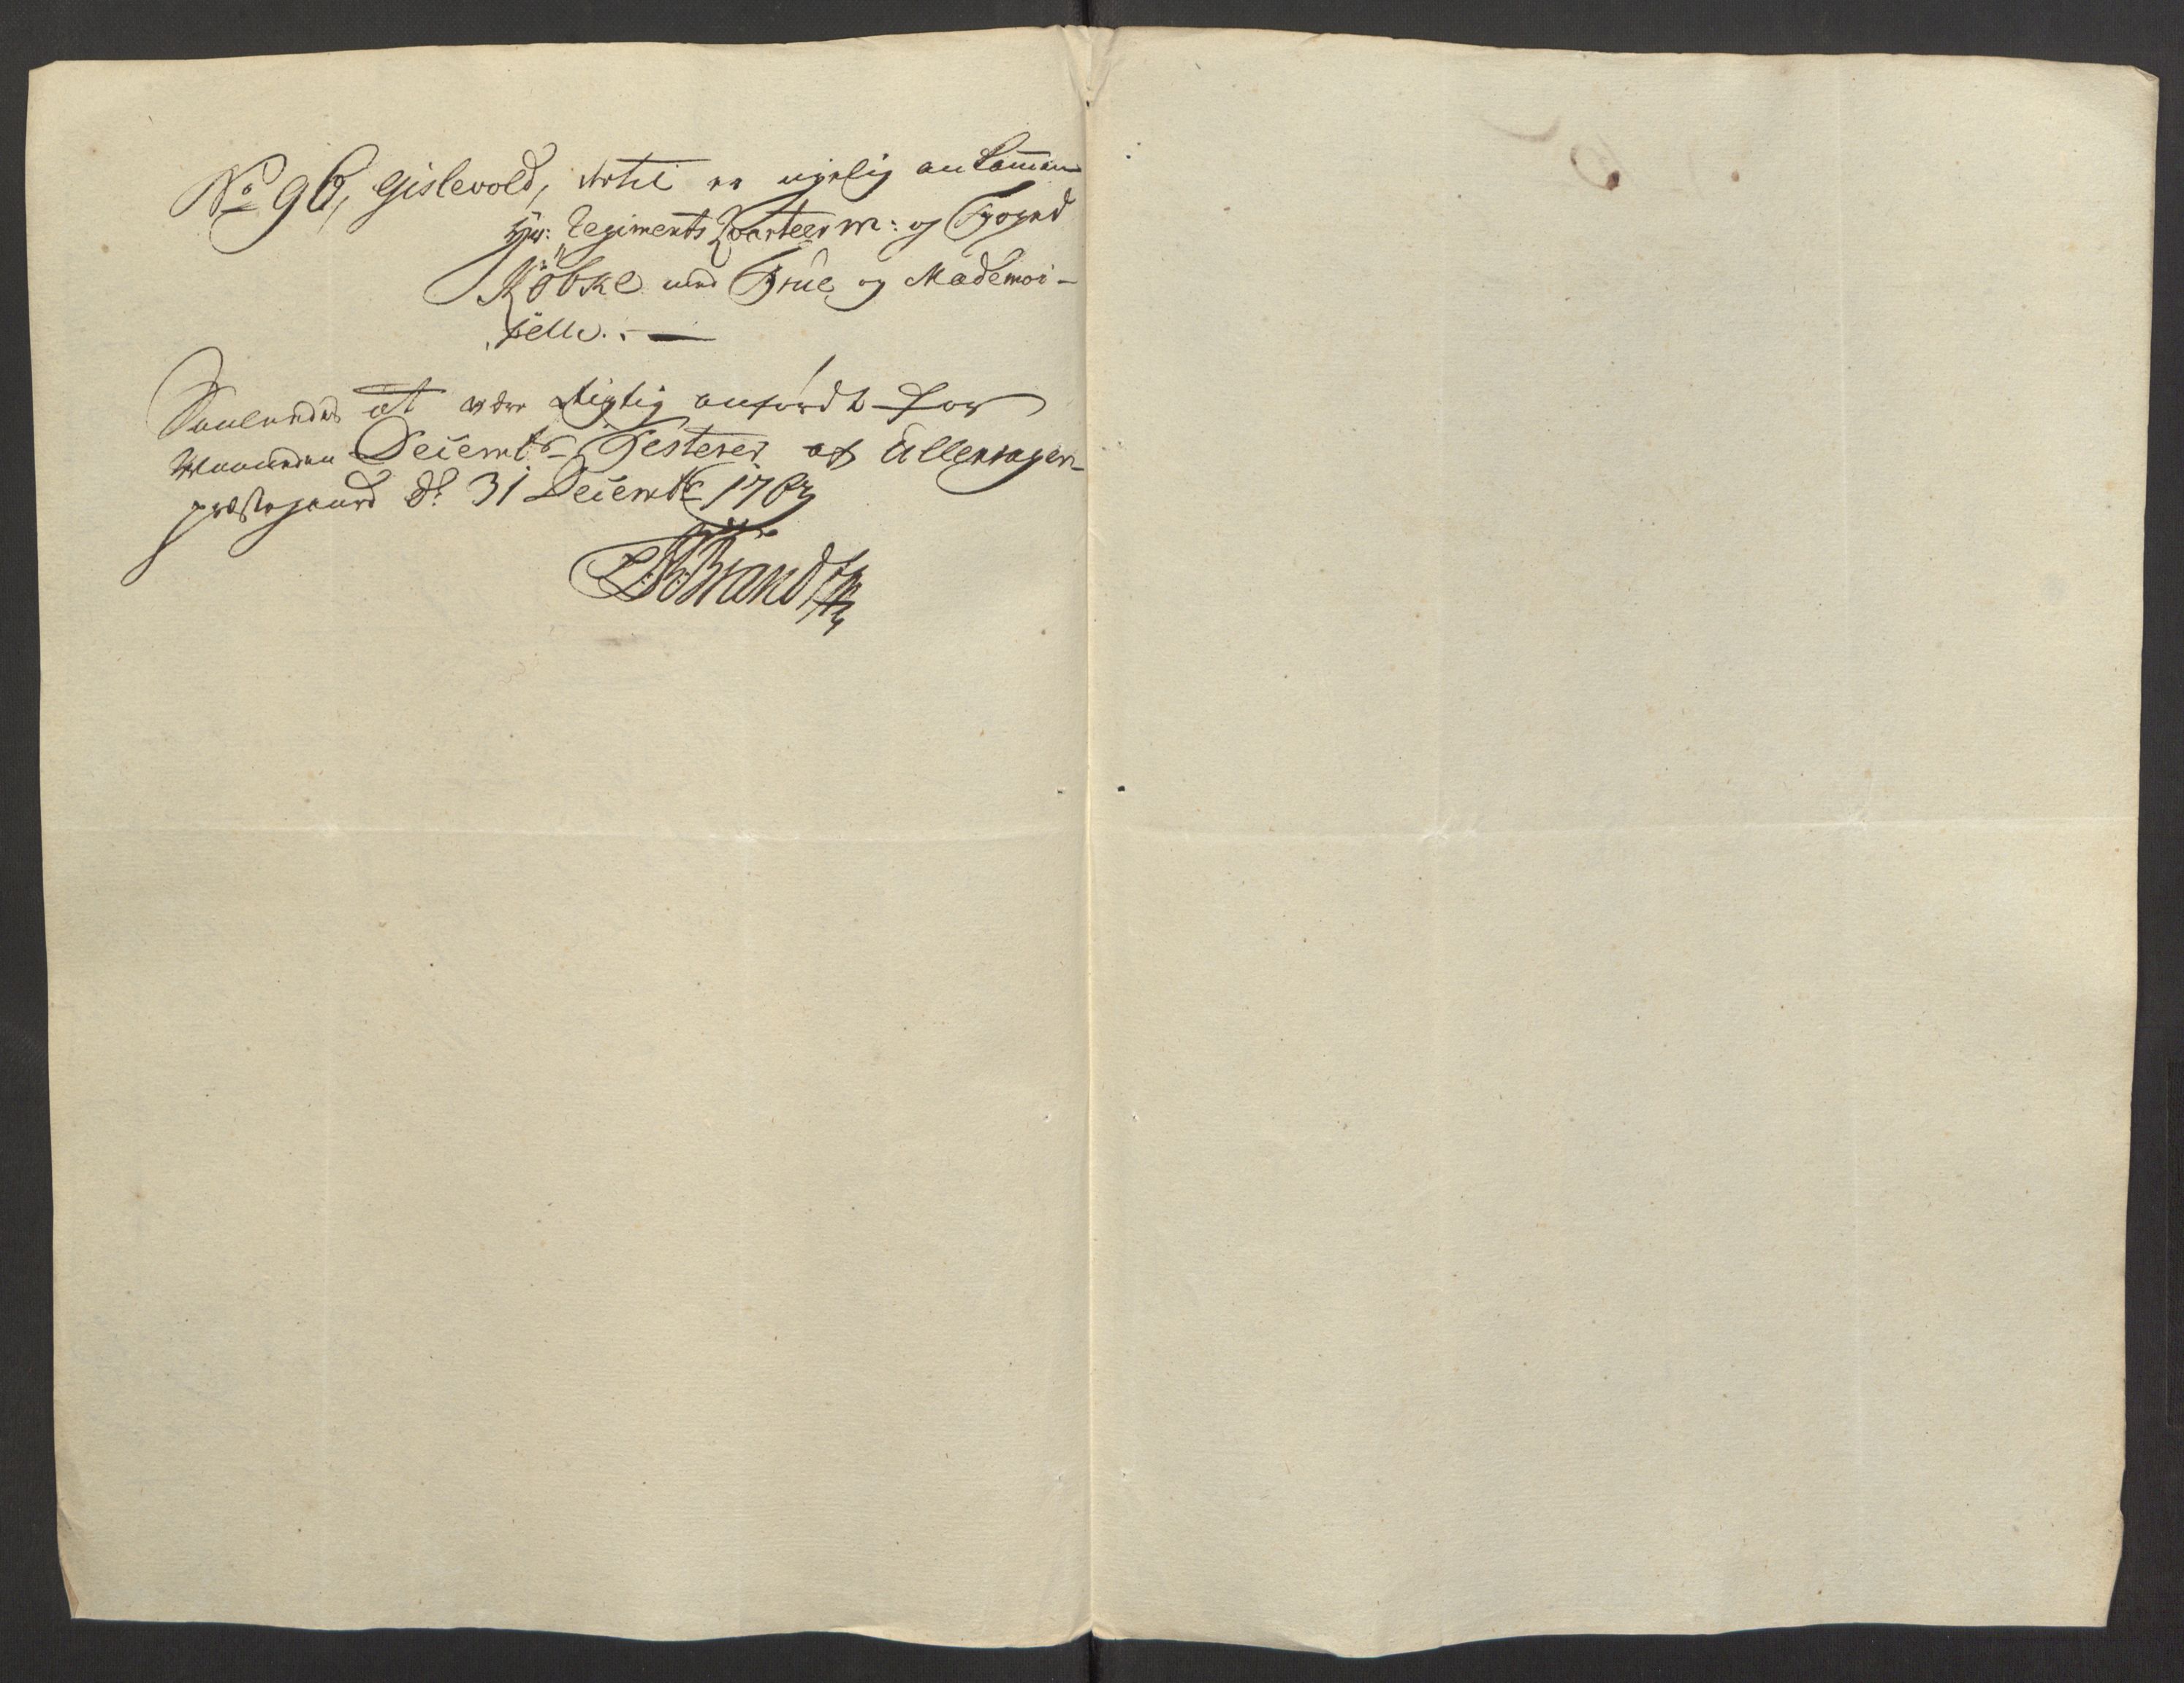 No 96, Gislevold, dertil er nyelig ankommen
Hr: Regiments Qvarteerm: og Foged
Köbke med Frue og Mademoi-
selle. . —
Saaledes at være Rigtig anfördt for
Maaneden Decembr Testerer af Ullensager-
præstegaard d. 31 Decembr 1763
Brandt